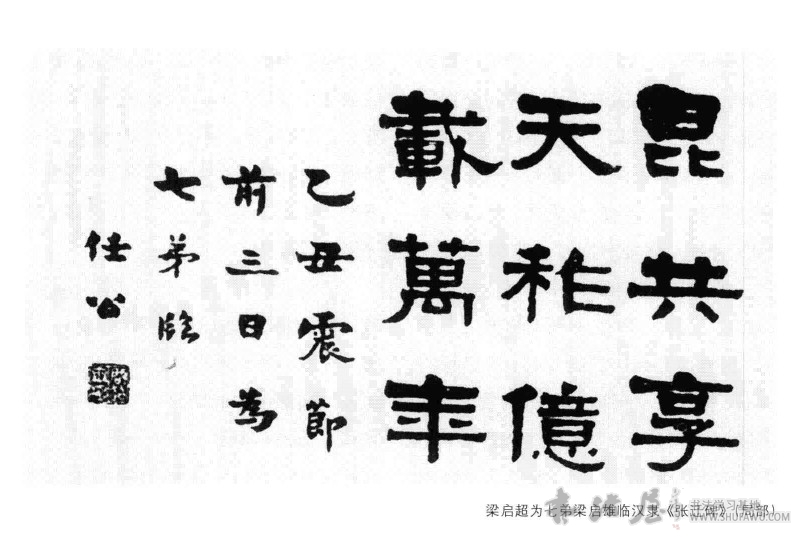 昆共享
天祚億
載萬年
乙丑震節
前三日為
七弟臨
任公
梁启超为七弟梁启雄临汉隶《张迁碑》(局部)
书法学习基地
WWW.SHUFAWU.COM